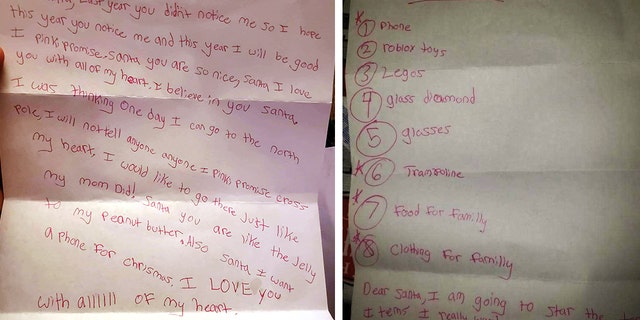 Last year you didn't notice me so I hope
this year you notice me and this year I will be good
I pinky promise. Santa you are so nice, Santa I love
you with all of my heart. I believe in you Santa.
I was thinking one day I can go to the north
pole, I will not tell anyone anyone I pinky promise cross
my heart, I would like to go there Just like
my mom Did! Santa you are like the Jelly
to my Peanut butter. Also Santa I want
a Phone for chrismas, I LOVE you
with allllll of my heart.
1 Phone
2 roblox toys
3 Legos
4 glass diamond
5 glasses
6 Trampoline
7 Food for familly
8 Clothing for familly
Dear Santa, I am going to star the
Items I